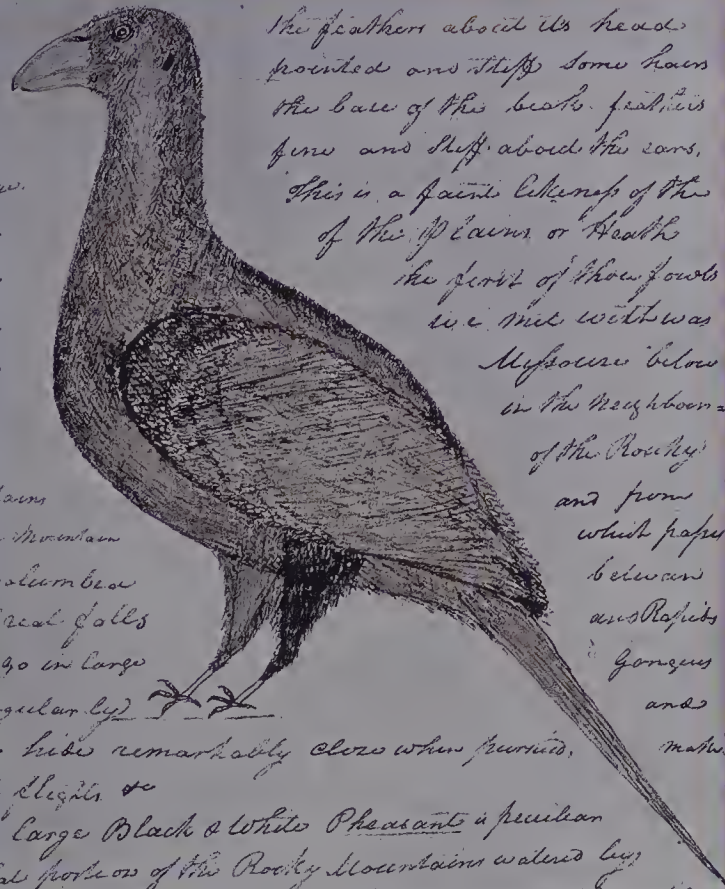 The feathers about its head
pointed and stiff some hairs
the base of the beak. feathers
fine and stiff about the ears,
This is a faint likeness of the
of the Plains or Heath
the first of those fowls
we met with was
Missourie below
in the neighbour=
of the Rocky
lains and from
Mountain which pass
olumbia between
reat falls and Rapids
go in large Gangues
gularly) and
hide remarkably close when pursued, make
flights &c
large Black & White Pheasant is peculiar
al portion of the Rocky Mountains watered by